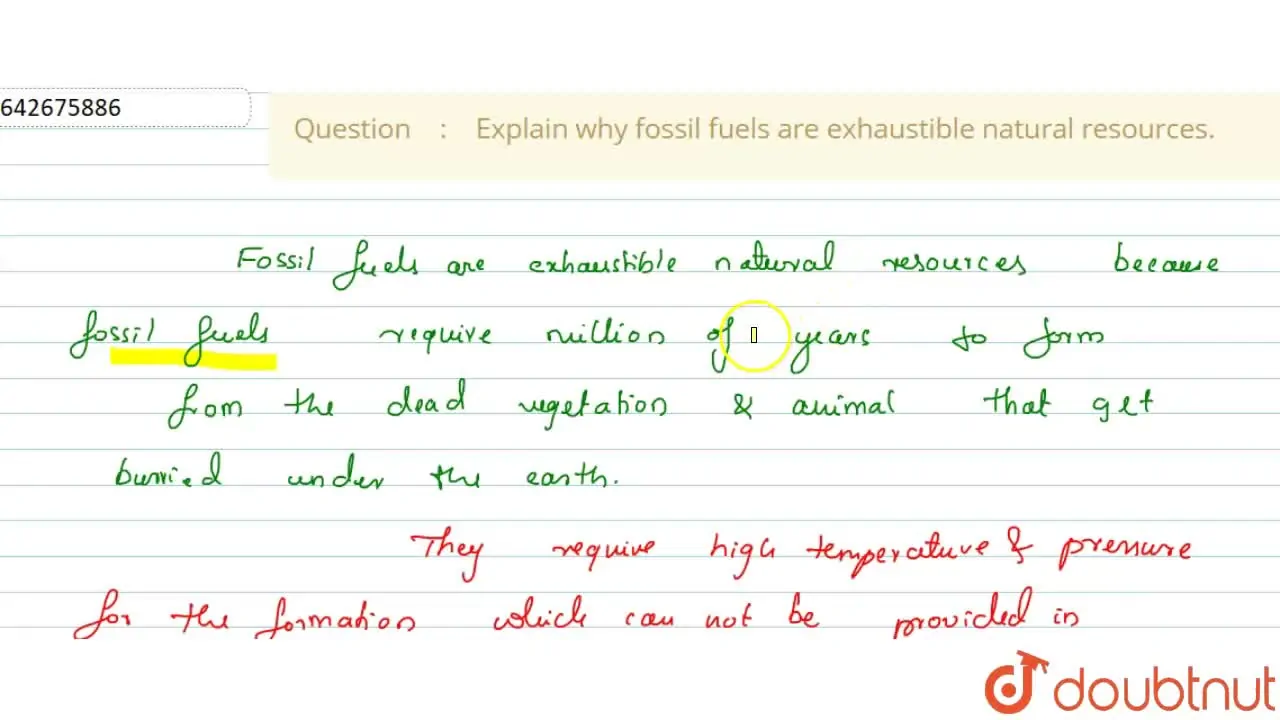 642675886
Question : Explain why fossil fuels are exhaustible natural resources.
Fossil fuels are exhaustible natural resources because
fossil fuels require million of years to form
from the dead vegetation & animal that get
burried under the earth.
They require high temperature & pressure
for the formation which can not be provided in
doubtnut